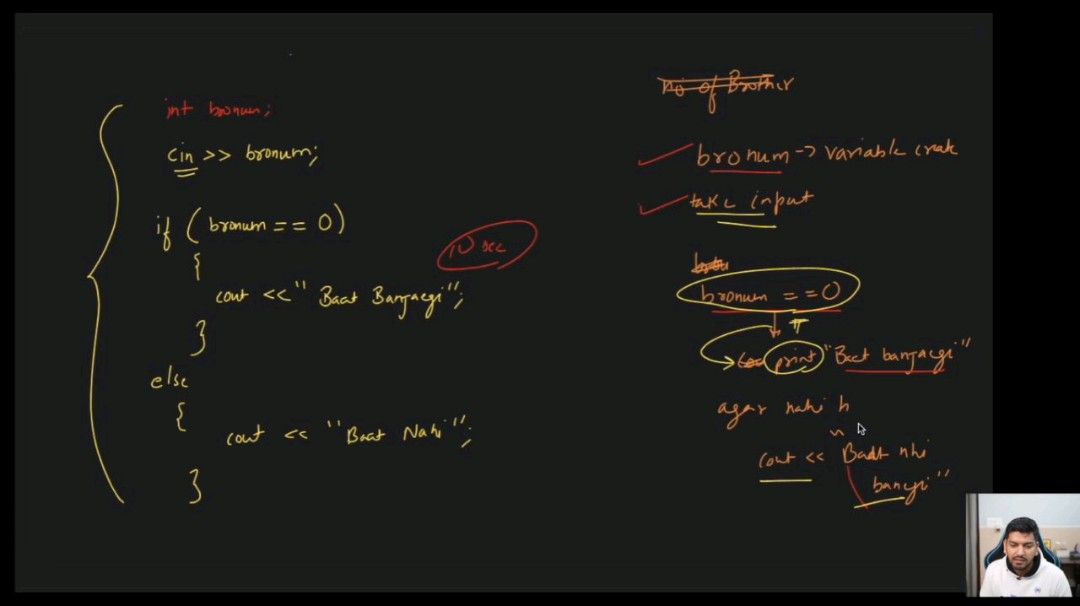 int bronum;
cin >> bronum;
if ( bronum == 0 )
{
cout << " Baat Banjaegi";
}
else
{
cout << "Baat Nahi";
}
10 sec
no of Brother
bronum -> variable creat
take input
bronum == 0
print "Baat banjaegi"
agar nahi h
cout << "Baat nhi
banegi"